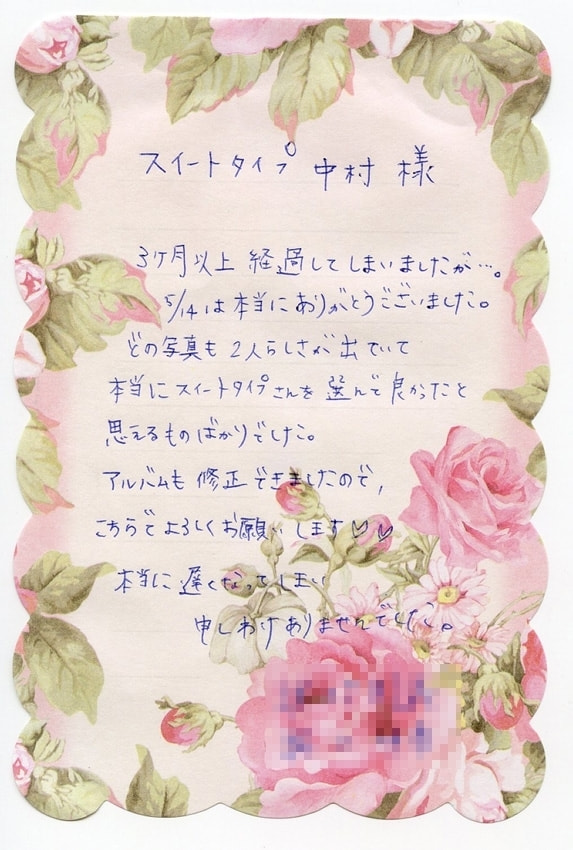 スイートタイプ 中村 様
3ケ月以上 経過してしまいましたが…。
5/14は本当にありがとうございました。
どの写真も 2人らしさが 出ていて
本当にスイートタイプさんを 選んで良かったと
思えるものばかりでした。
アルバムも 修正できましたので,
こちらでよろしくお願いします♡♡
本当に 遅くなってしまい
申しわけありませんでした。